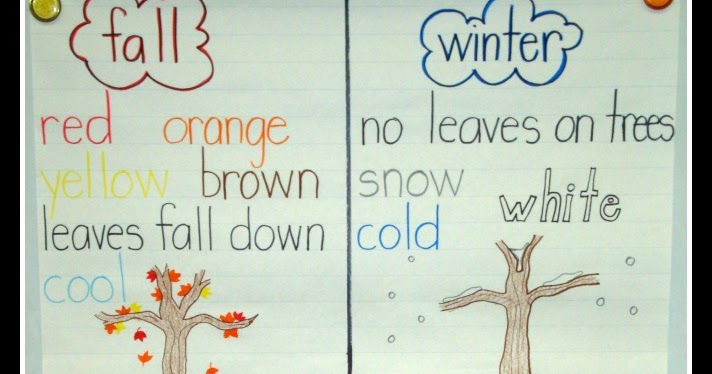 fall
red orange
yellow brown
leaves fall down
cool
winter
no leaves on trees
snow white
cold